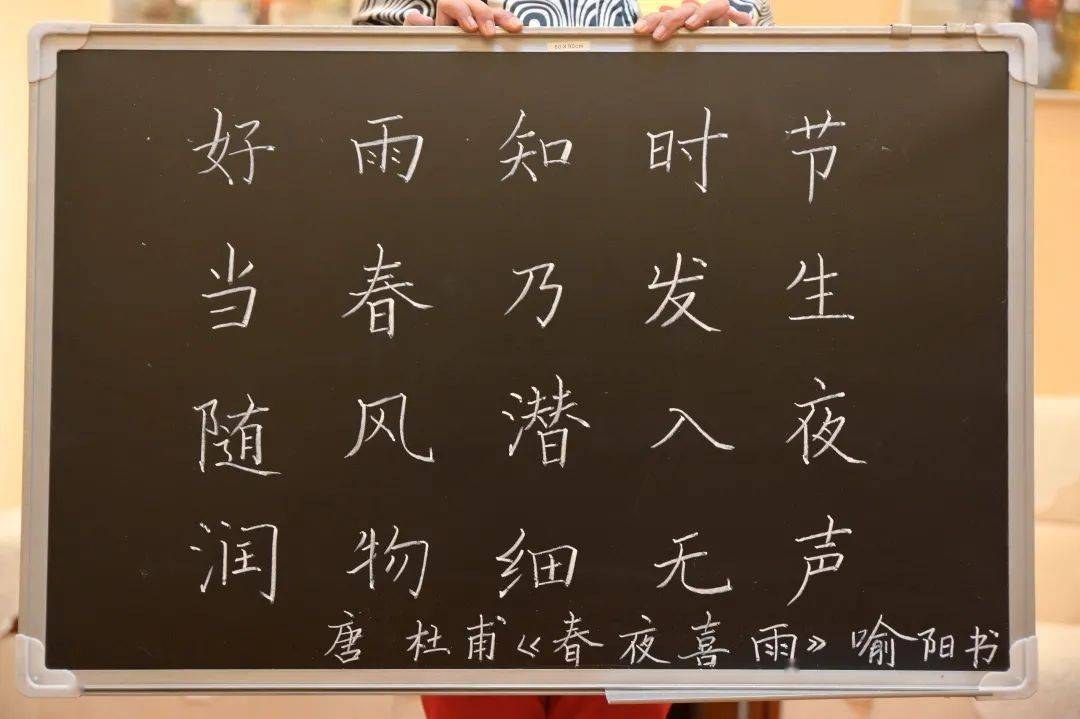 60×90cm
好雨知时节
当春乃发生
随风潜入夜
润物细无声
唐 杜甫《春夜喜雨》喻阳书